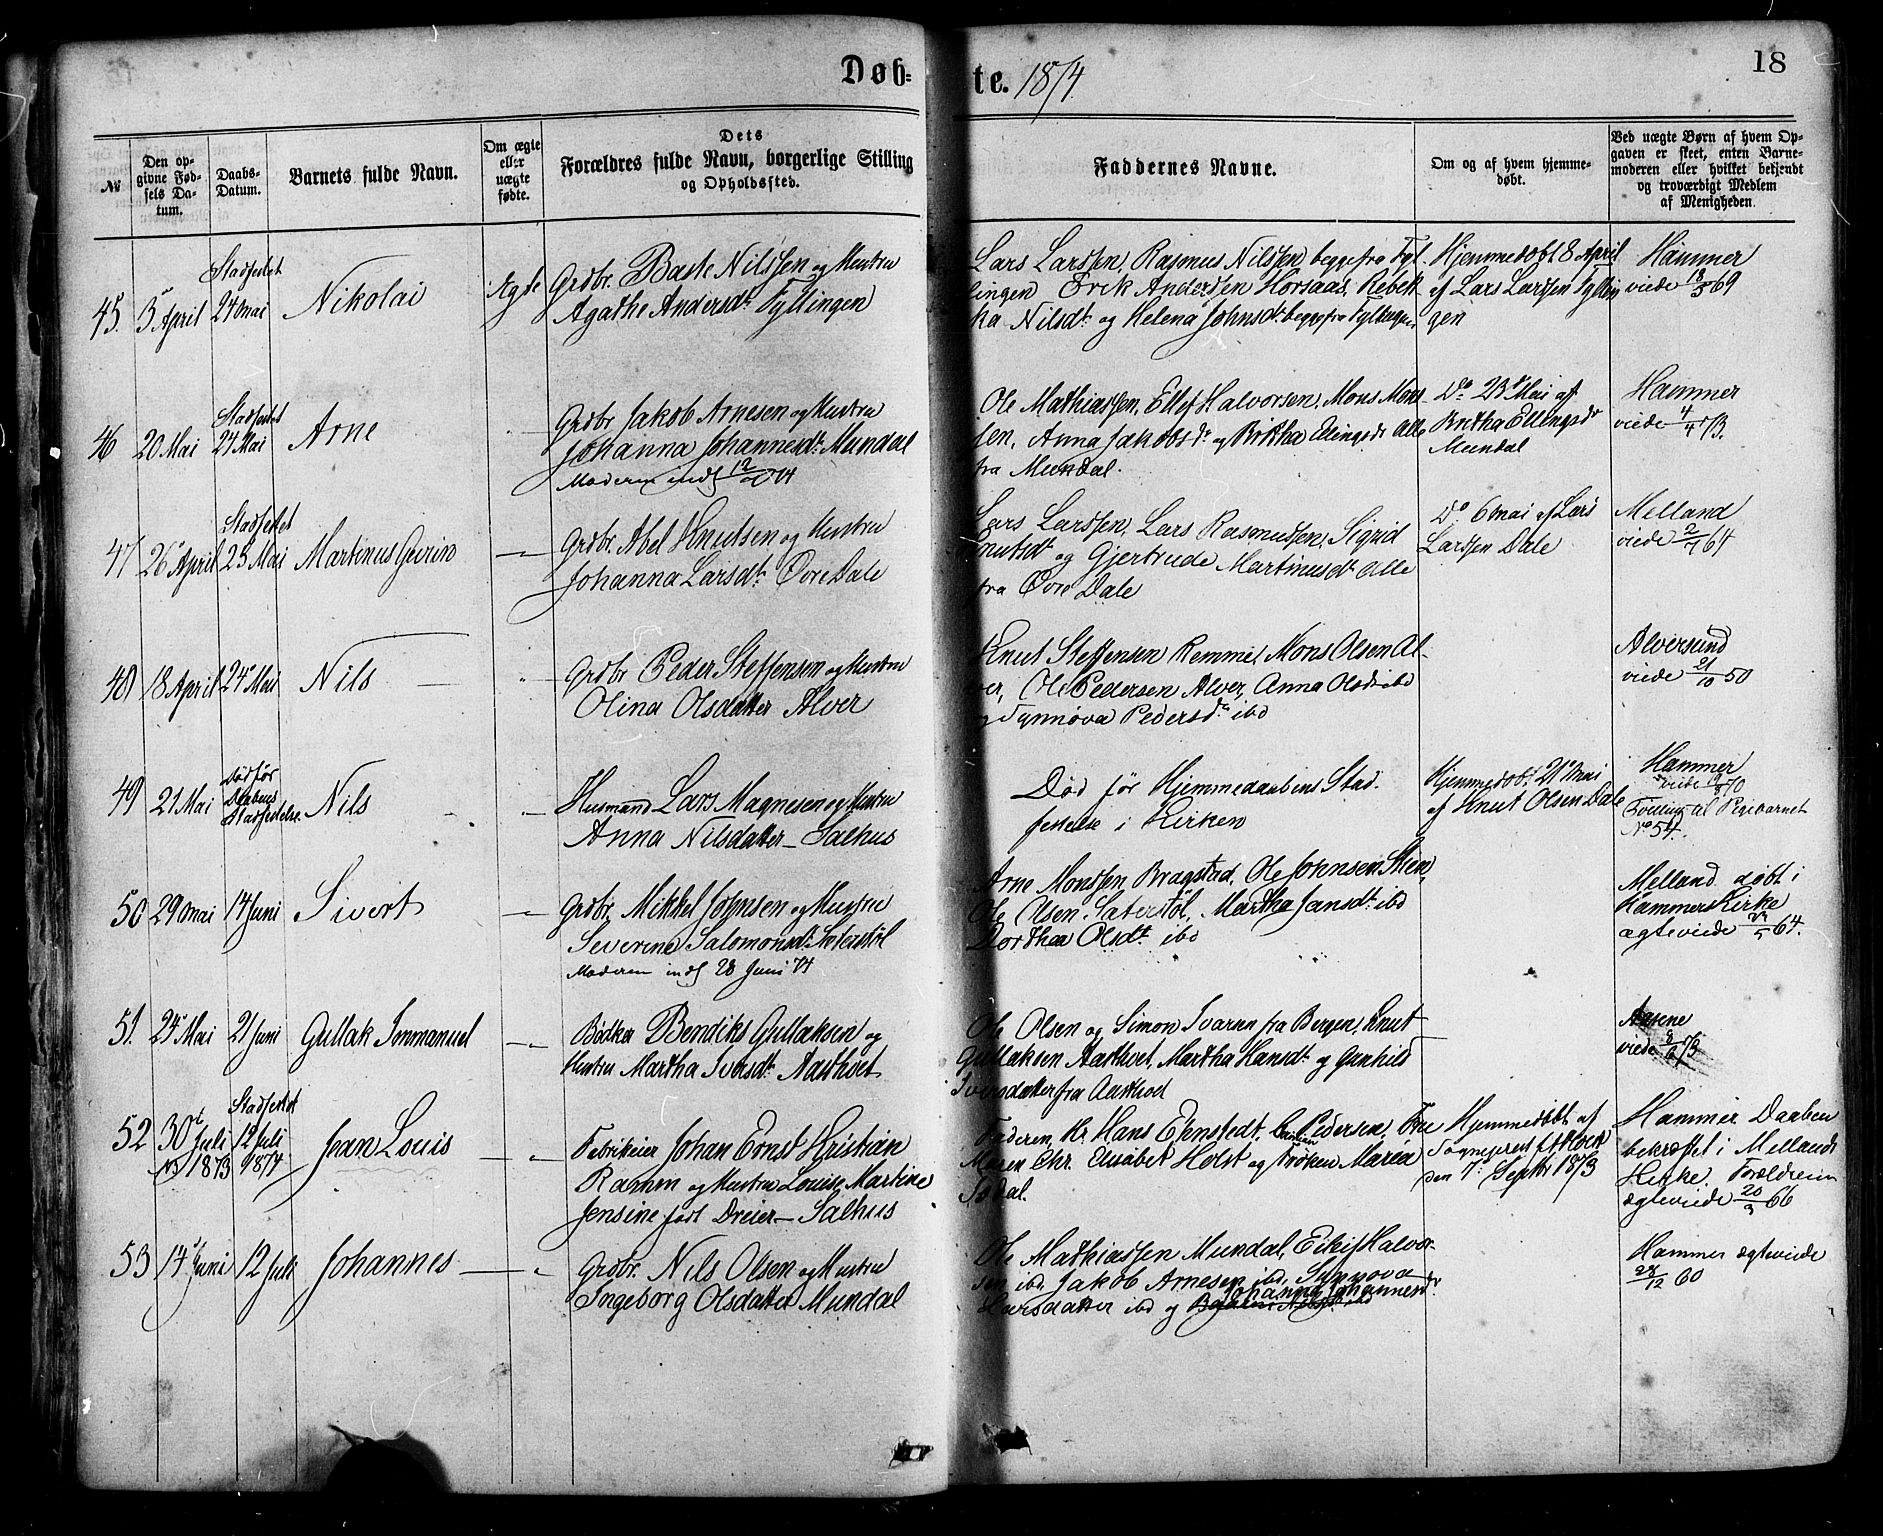 Døb-
te. 1874
18
№
Den op-
givne Fød-
sels Da-
tum.
Daabs-
Datum.
Barnets fulde Navn.
Om ægte
eller
uægte
fødte.
Dets
Forældres fulde Navn, borgerlige Stilling
og Opholdssted.
Faddernes Navne.
Om og af hvem hjemme-
døbt.
Ved uægte Børn af hvem Op-
gaven er skeet, enten Barne-
moderen eller hvilket bekjendt
og troværdigt Medlem
af Menigheden.
45. 5 April
Stadfestet
24 Mai
Nikolai
Ægte
Grdbr. Baste Nilssen og Hustru
Agathe Andersdt. Fyllingen
Lars Larssen, Rasmus Nilssen begge fra Fyl
lingen Erik Anderssen Horsaas, Rebek
ka Nilsdt. og Helena Johnsdt. begge fra Fyllingen
Hjemmedøbt 8 April
af Lars Larssen Fyllin
gen
Hammer
viede 13/5 69
46 20 Mai
Stadfestet
24 Mai
Arne
Grdbr. Jakob Arnesen og Hustru
Johanna Johannesdt. Mundal
Moderen indl 12/7 74
Ole Mathiassen, Ellef Halvorsen, Mons Mons
sen, Anna Jakobsdr. og Britha Elingsdr alle
fra Mundal.
Do. 23 Mai af
Britha Ellingsdr
Mundal
Hammer
viede 4/4 73.
47 26 April
Stadfestet
25 Mai
Martinus Gerin
Grdbr. Abel Knutsen og Hustru
Johanna Larsdt. Øvre Dale
Lars Larssen, Lars Rasmussen, Sigrid
Knutsdt og Gjertrude Martinusdt. alle
fra Øvre Dale
Do. 6 mai af Lars
Larssen Dale
Melland
viede 2/7 64
48 18 April 24 Mai
Nils
Grdbr Peder Steffensen og Hustru
Olina Olsdatter Alver
Knut Steffensen Remme, Mons Olsen Al-
ver, Ole Pedersen Alver, Anna Olsdt ibd
og Synnøva Pedersdr. ibd
Alversund
viede 21/10 50
49 21 Mai
Død før
Daabens
Stadfestelse.
Nils
Husmand Lars Magnesen og Hustru
Anna Nilsdatter - Salhus
Død før Hjemmedaabens Stad-
festelse i Kirken
Hjemmedøbt 21 Mai
af Knut Olsen Dale
Hammer
viede 19/8 70
Tvilling til Pigebarnet
No 54.
50 29 mai 14 Juni
Sivert
Grdbr. Mikkel Johnsen og Hustru
Severine Salomonsdt. Sæterstøl
Moderen indl 28 Juni 74
Arne Monssen Bragstad, Ole Johnsen Stien,
Ole Olsen Saterstøl, Martha Jansdt. ibd
Dorthea Olsdt. ibd
Melland døbt i
Hammers Kirke
ægteviede 29/5 64.
51. 25 Mai 21 Juni
Gullak Immanuel
Bødker Bendiks Gullaksen og
Hustru Martha Iversdt. Aasthvet
Ole Olsen og Simon Ivarsen fra Bergen, Knut
Gullaksen Aasthvet, Martha Hansdt. og Gunhild
Iversdatter fra Aasthvet
Aasene
viede 8/6 73
52 30t
Juli
1873
Stadfestet
12 Juli
1874
Jean Louis
Fabrikeier Johan Ernst Kristian
Ramm og Hustru Louise Martine
Jensine født Dreier - Salhus
Faderen, Hr. Hans Ehnstedt, Pedersen, Fru
Maren Chr. Elisabet Holst og Frøken Maria
Sødal.
Hjemmedøbt af
Sogneprest
den 7 Septbr 1873
Hammer Daaben
bekræftet i Mellands
Kirke Forældrene
ægteviede 20/9 66
53 14 Juni 12 Juli
Johannes
Grdbr. Nils Olsen og Hustru
Ingeborg Olsdatter Mundal
Ole Mathiassen Mundal, Eilif Halvor-
sen ibd, Jakob Arnesen ibd, Sunnova
Johanna Johannesdr.
Larsdatter ibd og
Hammer ægteviede
28/12 60